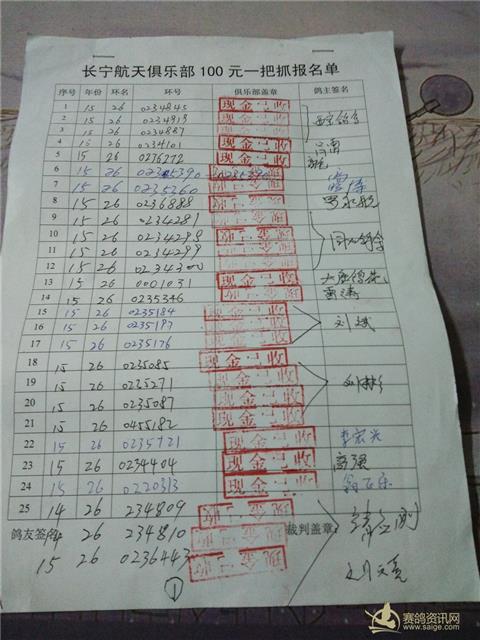 长宁航天俱乐部100元一把抓报名单
序号 年份 环名 环号 俱乐部盖章 鸽主签名
1 15 26 0234845 现金已收
2 15 26 0234813 现金已收
3 15 26 0234887 现金已收
4 15 26 0234101 现金已收
5 15 26 0276772 现金已收
6 15 26
7 15 26 0235260 现金已收
8 15 26 0236888 现金已收
9 15 26 0234281 现金已收
10 15 26 0234298 现金已收
11 15 26 0234299 现金已收
12 15 26 0234300 现金已收
13 15 26 0001031 现金已收
14 15 26 0235346 现金已收
15 15 26 0235184 现金已收
16 15 26 0235187 现金已收 刘斌
17 15 26 0235176 现金已收
18 15 26 0235085 现金已收
19 15 26 0235271 现金已收
20 15 26 0235087 现金已收
21 15 26 0455182 现金已收
22 15 26 0235721 现金已收 李宏兴
23 15 26 0234404 现金已收 高强
24 15 26 0220313 现金已收
25 14 26 234809 现金已收
鸽友签名 14 26 234810 现金已收 裁判盖章:
15 26 0236443 现金已收
1
赛鸽资讯网
www.saige.com